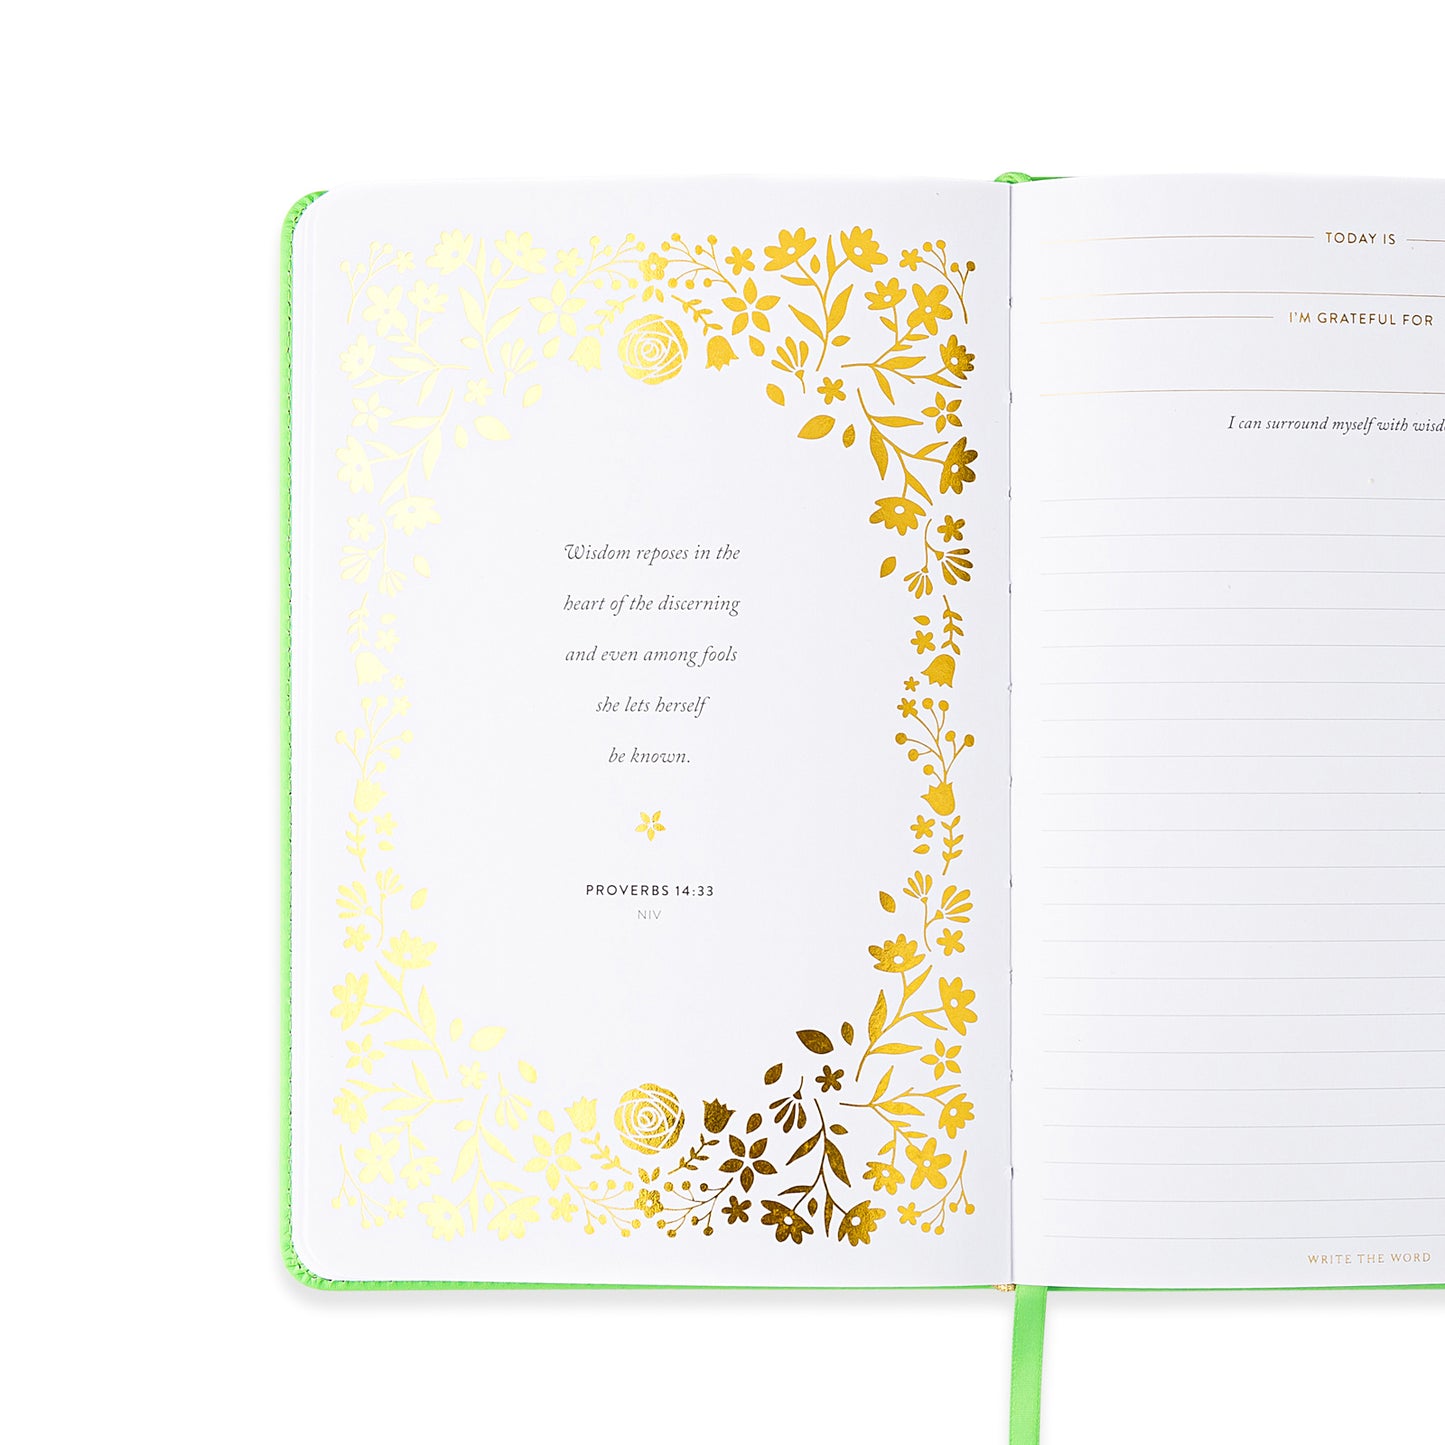 Wisdom reposes in the
heart of the discerning
and even among fools
she lets herself
be known.
PROVERBS 14:33
NIV
TODAY IS
I'M GRATEFUL FOR
I can surround myself with
WRITE THE WORD